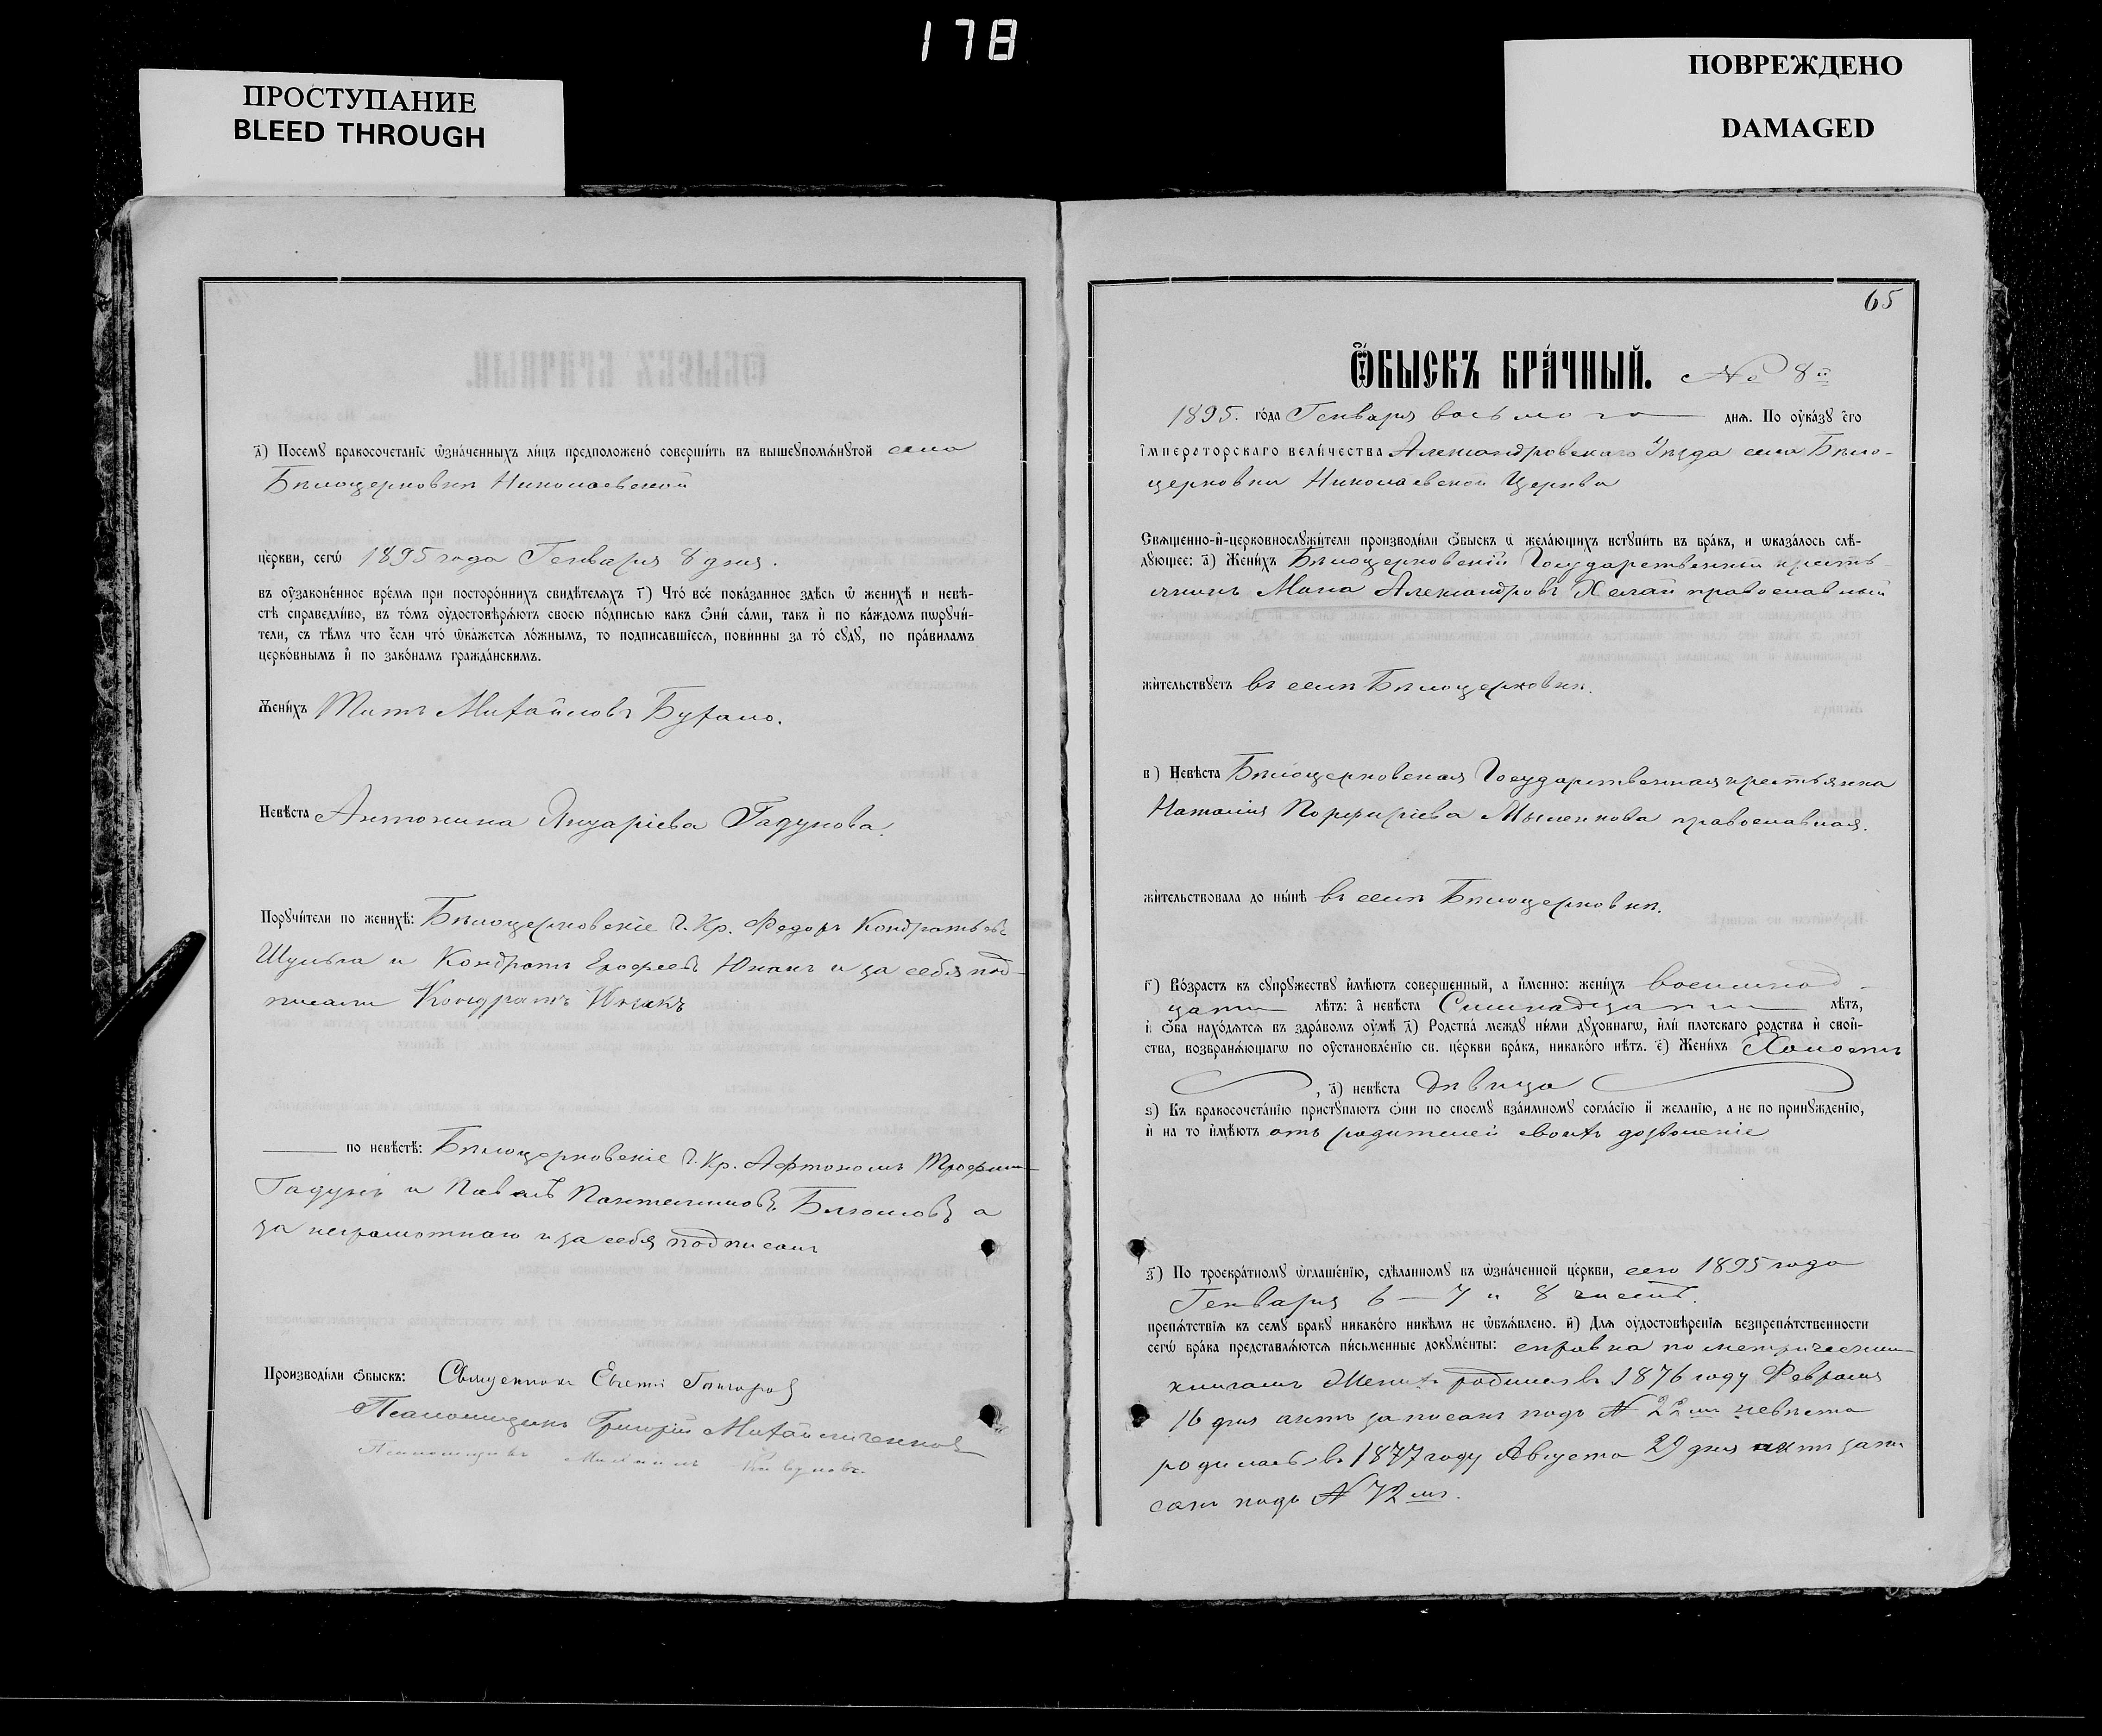 178
ПРОСТУПАНИЕ
BLEED THROUGH
ПОВРЕЖДЕНО
DAMAGED
д҃) Посемꙋ бракосочетанїе ѡзна́ченныхъ ли́цъ предположено́ соверши́ть въ вышеꙋпомѧ́нꙋтой села
Бѣлоцерковки Николаевской
це́ркви, сегѡ̀ 1895 года Генваря 8 дня.
въ оу҆законе́нное вре́мѧ при посторо́ннихъ свидѣ́телѧхъ г҃) Что̀ всѐ пока́занное здѣ́сь ѡ женихѣ̀ и невѣ́-
стѣ справедли́во, въ то́мъ оу҆достовѣрѧ́ютъ своею по́дписью какъ ѻ҆ни́ са́ми, такъ и҆ по ка́ждомъ порꙋчи́-
тели, съ тѣ́мъ что е҆́сли что̀ ѡ҆ка́жетсѧ ло́жнымъ, то подписавшїесѧ, пови́нны за то̀ сꙋдꙋ̀, по пра́виламъ
церко́внымъ и҆ по зако́намъ гражда́нскимъ.
Жени́хъ Титъ Михайловъ Бухало.
Невѣ́ста Антонина Януаріева Гадунова.
Порꙋчи́тели по женихѣ̀: Бѣлоцерковскіе Г. Кр. Федоръ Кондратьевъ
Шульга и Кондратъ Ерофеевъ Юнакъ и за себя под-
писали Кондратъ Юнакъ
по невѣ́стѣ: Бѣлоцерковскіе Г. Кр. Афтономъ Трофим
Гадунъ и Павелъ Пантелимовъ а
за неграмотнаго и за себя подписалъ
Производи́ли ѻ҆́быскъ: Священникъ Евгеній Григоров
Псаломщикъ Григорій Михайличенков
Псаломщикъ Михаилъ
65
Ѻ҆́БЫСКЪ БРА́ЧНЫЙ. № 8й
1895. го́да Генваря восьмого днѧ. По оу҆ка́зꙋ є҆гѡ̀
і҆мператорскаго вели́чества Александровскаго Уѣзда села Бѣло-
церковки Николаевской Церкви
Свѧщенно-и҆-церковнослꙋжи́тели производи́ли ѻ҆́быскъ ѡ҆ жела́ющихъ встꙋпи́ть въ бра́къ, и ѡказа́лось слѣ́-
дꙋющее: а҃) Жени́хъ Бѣлоцерковскій Государственный кресть-
янинъ Мина Александровъ Халай православный
жи́тельствꙋетъ въ селѣ Бѣлоцерковкѣ.
в҃) Невѣ́ста Бѣлоцерковская Государственная крестьянка
Наталія Порфиріева Мысенкова православная.
жи́тельствовала до ны́нѣ въ селѣ Бѣлоцерковкѣ.
г҃) Во́зрастъ къ сꙋпрꙋ́жествꙋ и҆мѣ́ютъ совершенный, а и҆́менно: жени́хъ восемнад-
цати лѣ́тъ: а҆ невѣ́ста Семнадцати лѣ́тъ,
и҆ ѻ҆́ба нахо́дѧтсѧ въ здра́вомъ оу҆мѣ̀ д҃) Родства̀ междꙋ ни́ми дꙋхо́внагѡ, и҆лѝ пло́тскаго родства̀ и҆ свой-
ства̀, возбранѧ́ющагѡ по оу҆становле́нїю св. це́ркви бра́къ, никако́го нѣ́тъ. є҃) Жени́хъ Холостъ
, а҃) невѣ́ста дѣвица
ѕ҃) Къ бракосочета́нїю пристꙋпаютъ ѻ҆ни́ по своемꙋ̀ вза́имномꙋ согла́сїю и҆ жела́нїю, а не по принꙋжде́нїю,
и҆ на то и҆мѣ́ютъ отъ родителей своихъ дозволеніе
з҃) По троекра́тномꙋ ѡ҆глаше́нїю, сдѣ́ланномꙋ въ ѡ҆зна́ченной це́ркви, сего 1895 года
Генваря 6 — 7 и 8 чиселъ.
препѧ́тствїѧ къ семꙋ̀ бра́кꙋ никако́го никѣ́мъ не ѡ҆б̾ѧ́влено. и҃) Длѧ оу҆достовѣ́ренїѧ безпрепѧ́тственности
сегѡ̀ бра́ка представлѧ́ютсѧ пи́сьменные докꙋме́нты: справка по метрическим
книгамъ Женихъ родился въ 1876 году Февраля
16 дня актъ записанъ подъ № 22мъ невѣста
родилась въ 1877 году Августа 29 дня актъ запи
санъ подъ № 72мъ.